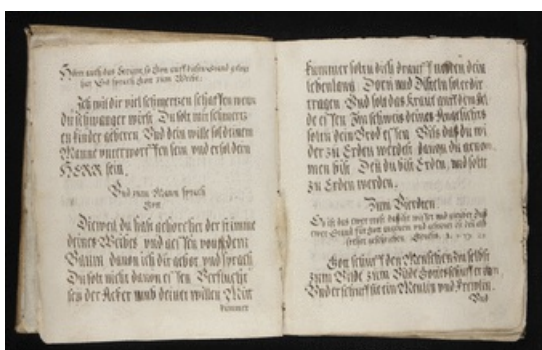 Höret auch das
hat Und sprach Gott zum Weibe:
Ich wil dir viel schmertzen schaffen wenn
du schwanger wirst Du solt mit schmertz
en kinder geberen Und dein wille sol deinem
Manne unterworffen sein und er sol dein
HERR sein.
Und zum Mann sprach
Gott.
Dieweil du hast gehorchet der stimme
deines Weibes und gessen von dem
Baum davon ich dir gebot und sprach
Du solt nicht davon essen Verflucht
sey der Acker umb deinet willen Mitt
kummer
kummer soltu dich drauff nehren dein
lebenlang Dorn und Disteln sol er dir
tragen Und solt das Kraut auff dem fel
de essen Im schweis deines Angesichts
soltu dein Brod essen Biss das du wi
der zu Erden werdest davon du genom
men bist Den du bist Erden, und solt
zu Erden werden.
Zum Vierdten.
So ist das ewer trost das ihr wisset und gleubet das
ewer Stand für Gott angenem und
Gott schuff den Menschen zu selbst
zum Bilde zum Bilde Gottes schuff er ihn
Und er schuff sie ein Menlin und Frewlin.
Und